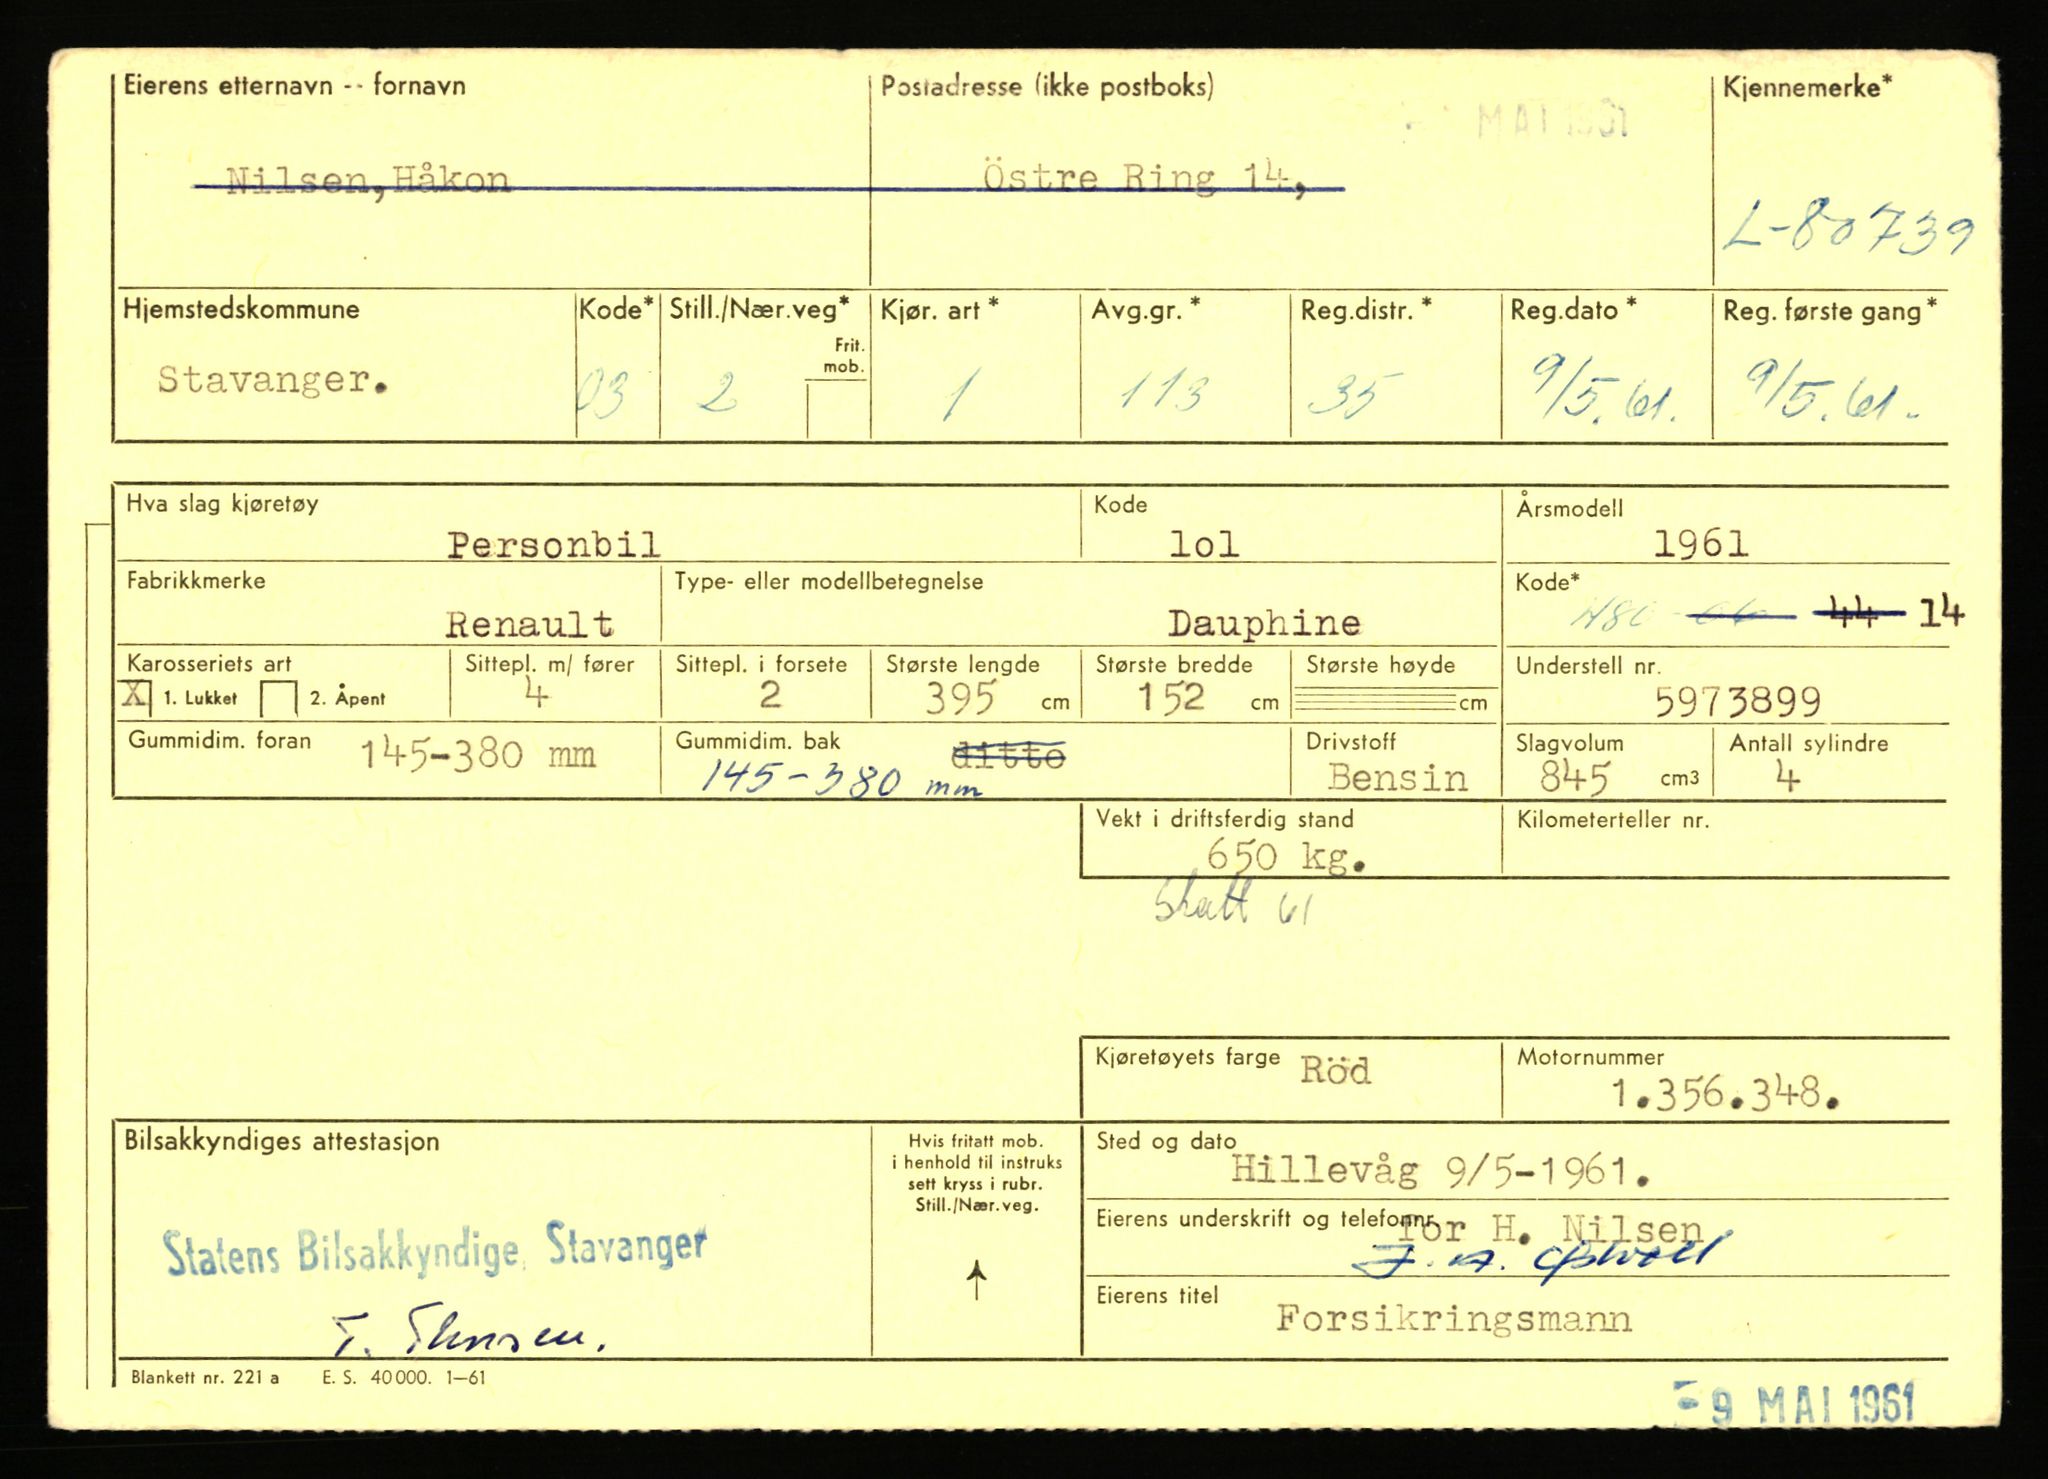 Eierens etternavn -- fornavn
Postadresse (ikke postboks)
Kjennemerke*
MAI 1961
Nilsen, Håkon
Östre Ring 14,
L-80739
Hjemstedskommune
Kode*
Still./Nær.veg*
Frit. mob.
Kjør. art *
Avg.gr. *
Reg.distr. *
Reg.dato *
Reg. første gang *
Stavanger.
03
2
1
113
35
9/5.61.
9/5.61.
Hva slag kjøretøy
Kode
Årsmodell
Personbil
lol
1961
Fabrikkmerke
Type- eller modellbetegnelse
Kode*
Renault
Dauphine
44 14
Karosseriets art
Sittepl. m/ fører
Sittepl. i forsete
Største lengde
Største bredde
Største høyde
Understell nr.
X 1. Lukket 2. Åpent
4
2
395 cm
152 cm
cm
5973899
Gummidim. foran
145-380 mm
Gummidim. bak
ditto
145-380 mm
Drivstoff
Bensin
Slagvolum
845 cm3
Antall sylindre
4
Vekt i driftsferdig stand
650 kg.
Kilometerteller nr.
Skatt 61
Kjøretøyets farge
Röd
Motornummer
1.356.348.
Bilsakkyndiges attestasjon
Hvis fritatt mob.
i henhold til instruks
sett kryss i rubr.
Still./Nær.veg.
Sted og dato
Hillevåg 9/5-1961.
Eierens underskrift og telefonnr.
for H. Nilsen
Statens Bilsakkyndige, Stavanger
Eierens titel
Forsikringsmann
Blankett nr. 221 a E. S. 40000. 1-61
-9 MAI 1961